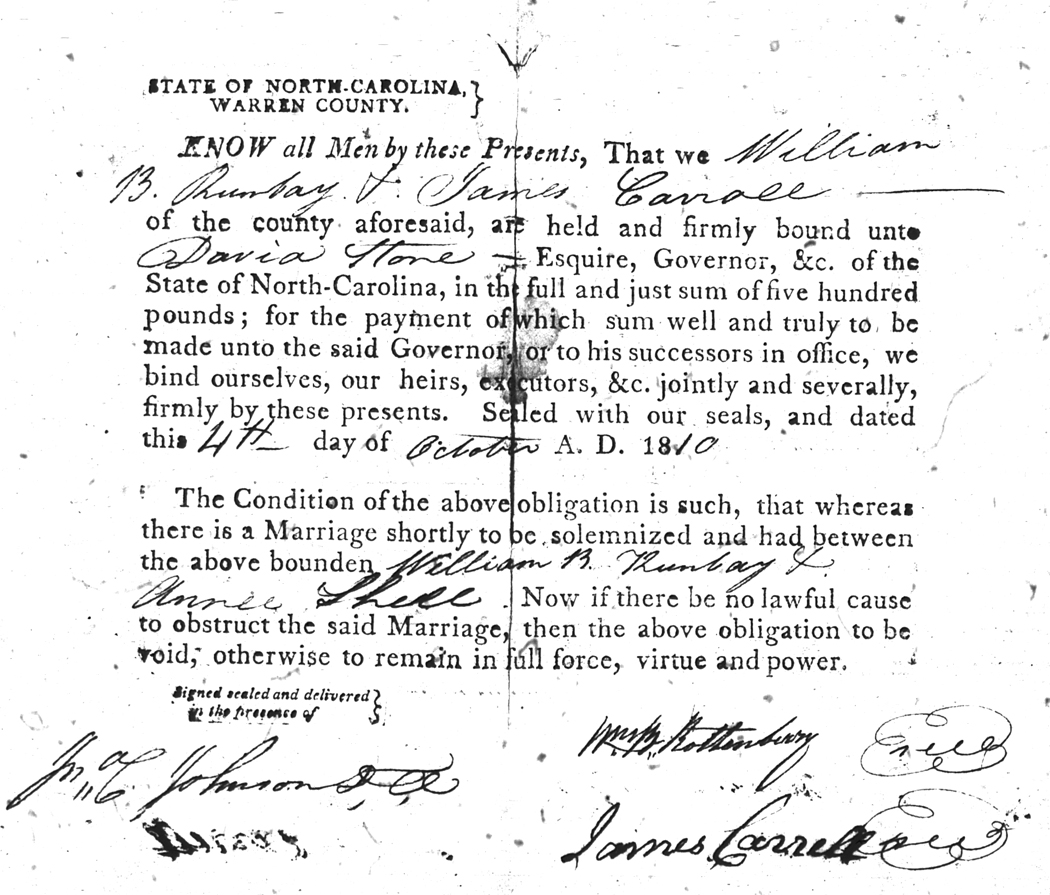 STATE OF NORTH-CAROLINA,
WARREN COUNTY.
KNOW all Men by these Presents, That we William
B. Runbay & James Carroll
of the county aforesaid, are held and firmly bound unto
David Stone Esquire, Governor, &c. of the
State of North-Carolina, in the full and just sum of five hundred
pounds; for the payment of which sum well and truly to be
made unto the said Governor, or to his successors in office, we
bind ourselves, our heirs, executors, &c. jointly and severally,
firmly by these presents. Sealed with our seals, and dated
this 4th day of October A. D. 1810
The Condition of the above obligation is such, that whereas
there is a Marriage shortly to be solemnized and had between
the above bounden William B. Runbay &
Shell. Now if there be no lawful cause
to obstruct the said Marriage, then the above obligation to be
void, otherwise to remain in full force, virtue and power.
Signed sealed and delivered
in the presence of
Wm. B. Rottenbery Seal
Johnson
James Carrell Seal